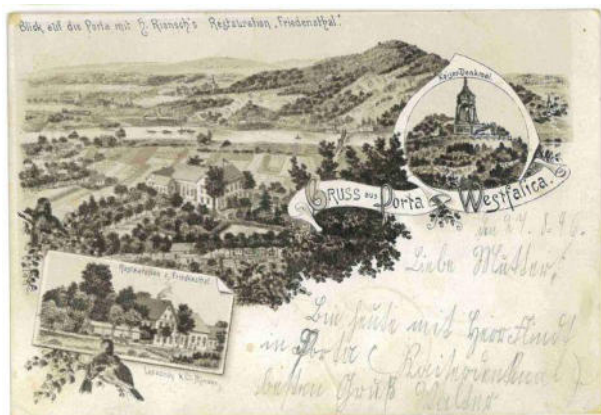 Blick auf die Porta mit H. Riensch's Restauration „Friedensthal."
Kaiser Denkmal.
GRUSS aus Porta Westfalica.
Restauration z. Friedensthal
Liebe Mutter,
Bin heute mit Herr
in Porta (Kaiserdenkmal)
besten Gruß Walter